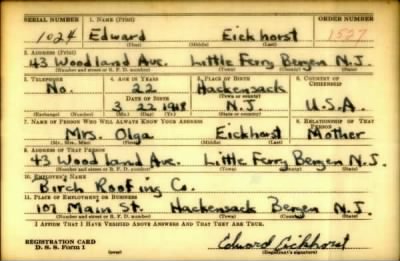 SERIAL NUMBER 1. NAME (Print) ORDER NUMBER
1024 Edward Eickhorst 1527
(First) (Middle) (Last)
2. ADDRESS (Print)
43 Woodland Ave. Little Ferry Bergen N.J.
(Number and street or R. F. D. number) (Town) (County) (State)
3. TELEPHONE 4. AGE IN YEARS 5. PLACE OF BIRTH 6. COUNTRY OF CITIZENSHIP
No. 22 Hackensack
DATE OF BIRTH (Town or county)
3 22 1918 N.J. U.S.A.
(Exchange) (Number) (Mo.) (Day) (Yr.) (State or country)
7. NAME OF PERSON WHO WILL ALWAYS KNOW YOUR ADDRESS 8. RELATIONSHIP OF THAT PERSON
Mrs. Olga Eickhorst Mother
(Mr., Mrs., Miss) (First) (Middle) (Last)
9. ADDRESS OF THAT PERSON
43 Woodland Ave. Little Ferry Bergen N.J.
(Number and street or R. F. D. number) (Town) (County) (State)
10. EMPLOYER'S NAME
Birch Roofing Co.
11. PLACE OF EMPLOYMENT OR BUSINESS
107 Main St. Hackensack Bergen N.J.
(Number and street or R. F. D. number) (Town) (County) (State)
I AFFIRM THAT I HAVE VERIFIED ABOVE ANSWERS AND THAT THEY ARE TRUE.
REGISTRATION CARD Edward Eickhorst
D. S. S. Form 1 (Registrant's signature)